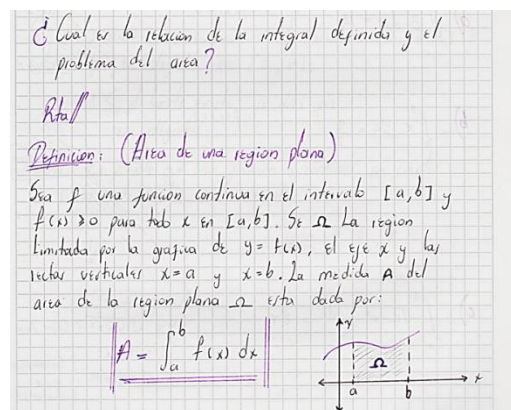 ¿Cual es la relacion de la integral definida y el
problema del area?
Rta//
Definicion: (Area de una region plana)
Sea f una funcion continua en el intervalo [a,b] y
f(x) ≥ 0 para todo x en [a,b]. Se Ω La region
Limitada por la grafica de y = f(x), el eje x y las
rectas verticales x=a y x=b. La medida A del
area de la region plana Ω esta dada por:
A = ∫_a^b f(x) dx
y
Ω
a b x